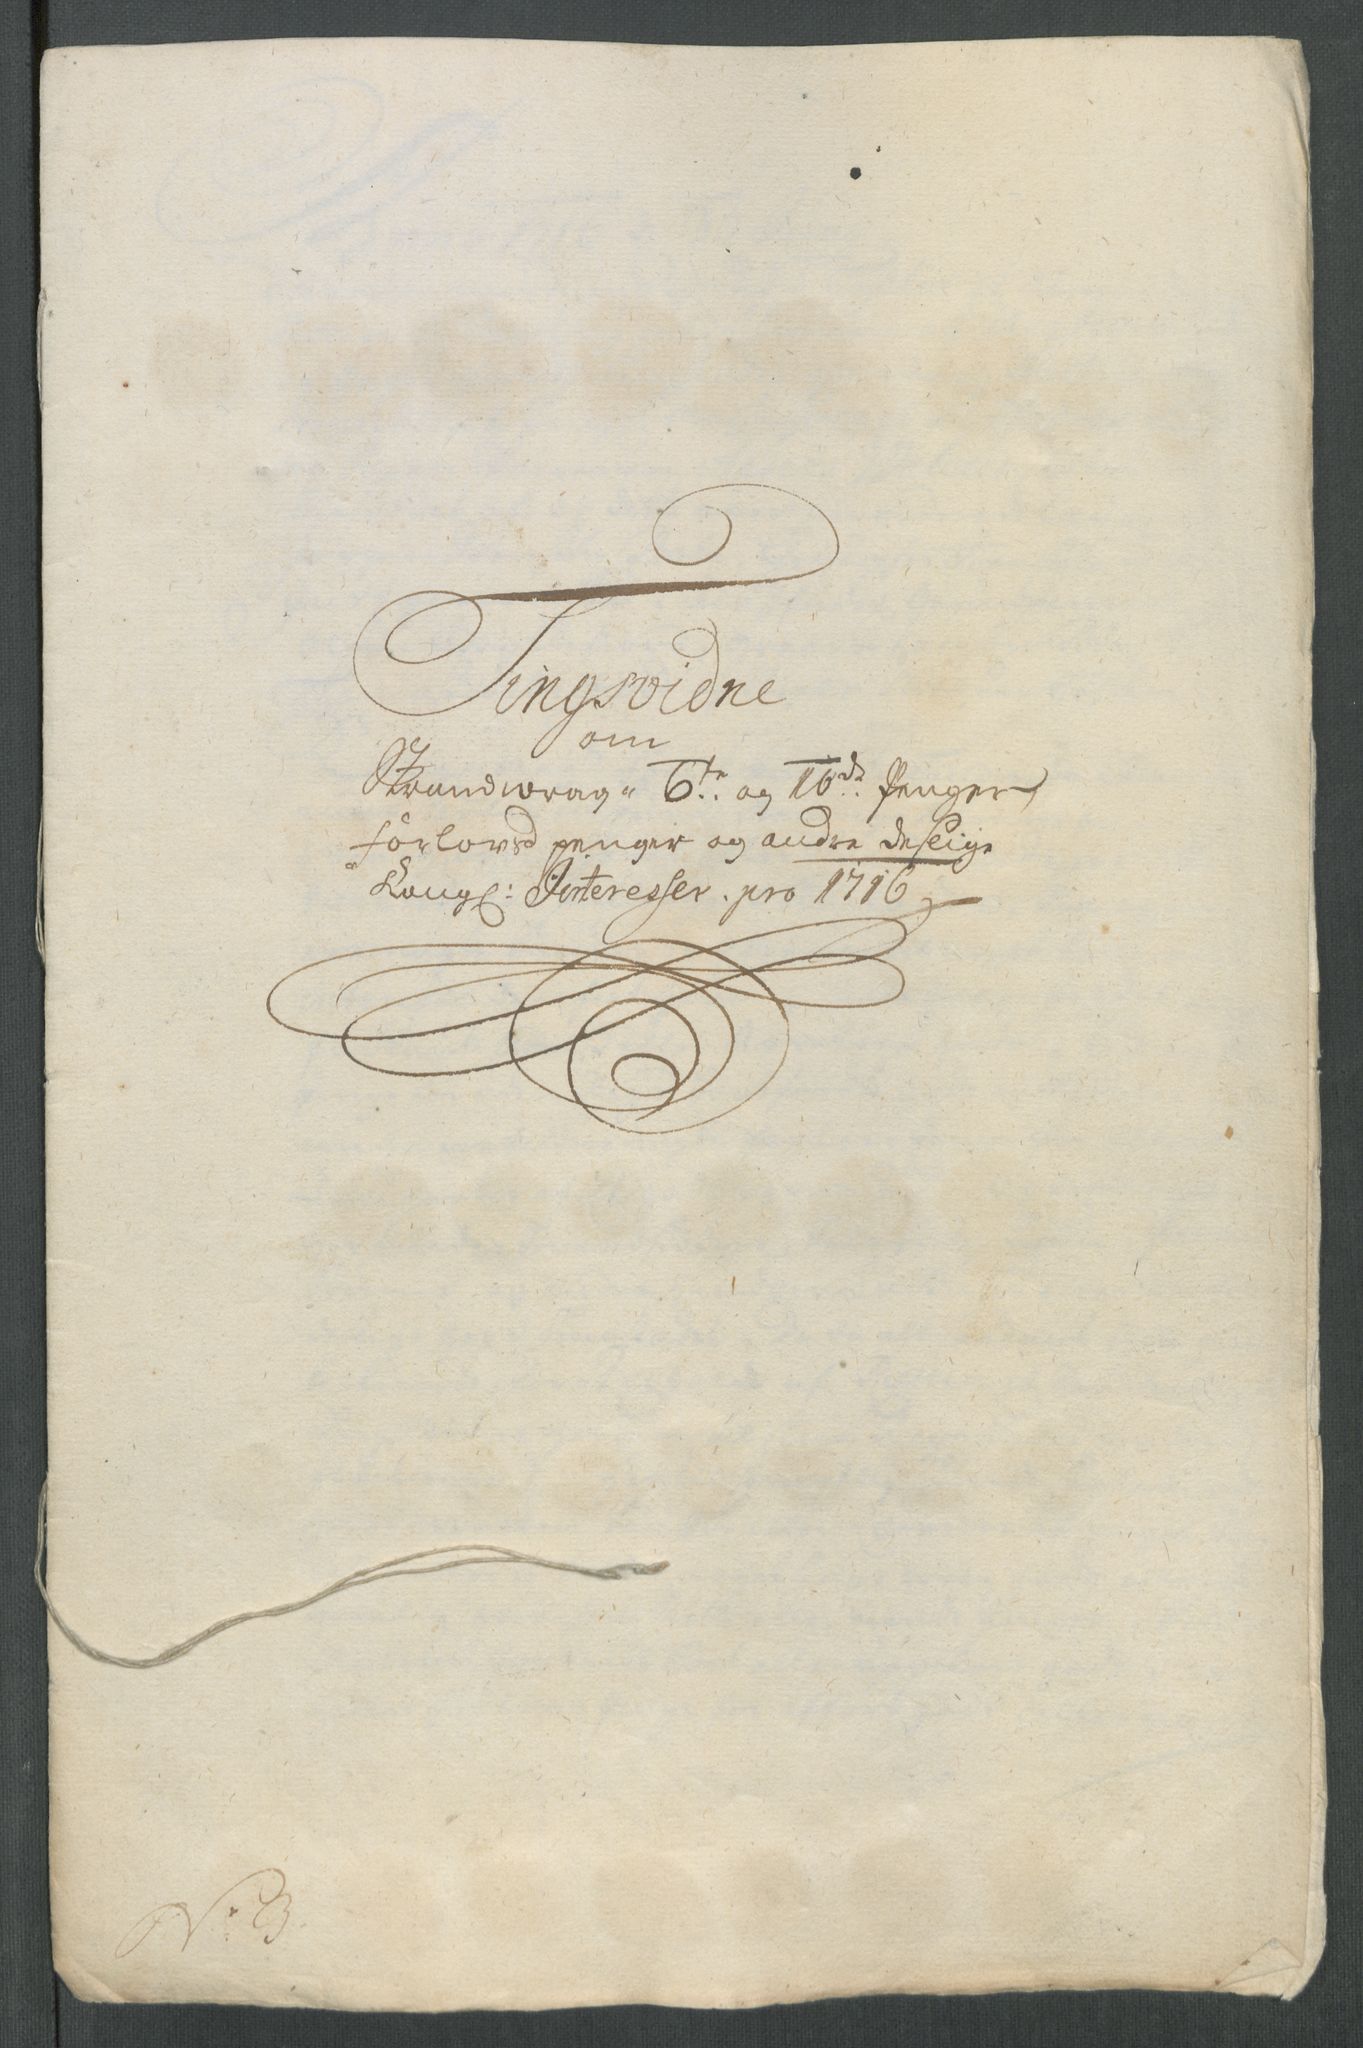 Tingsvidne
om
Strandwrag 6te. og 10de. Penger,
förlovs penger og andre deslige
Kongl: Interesser. pro 1716
No. 3